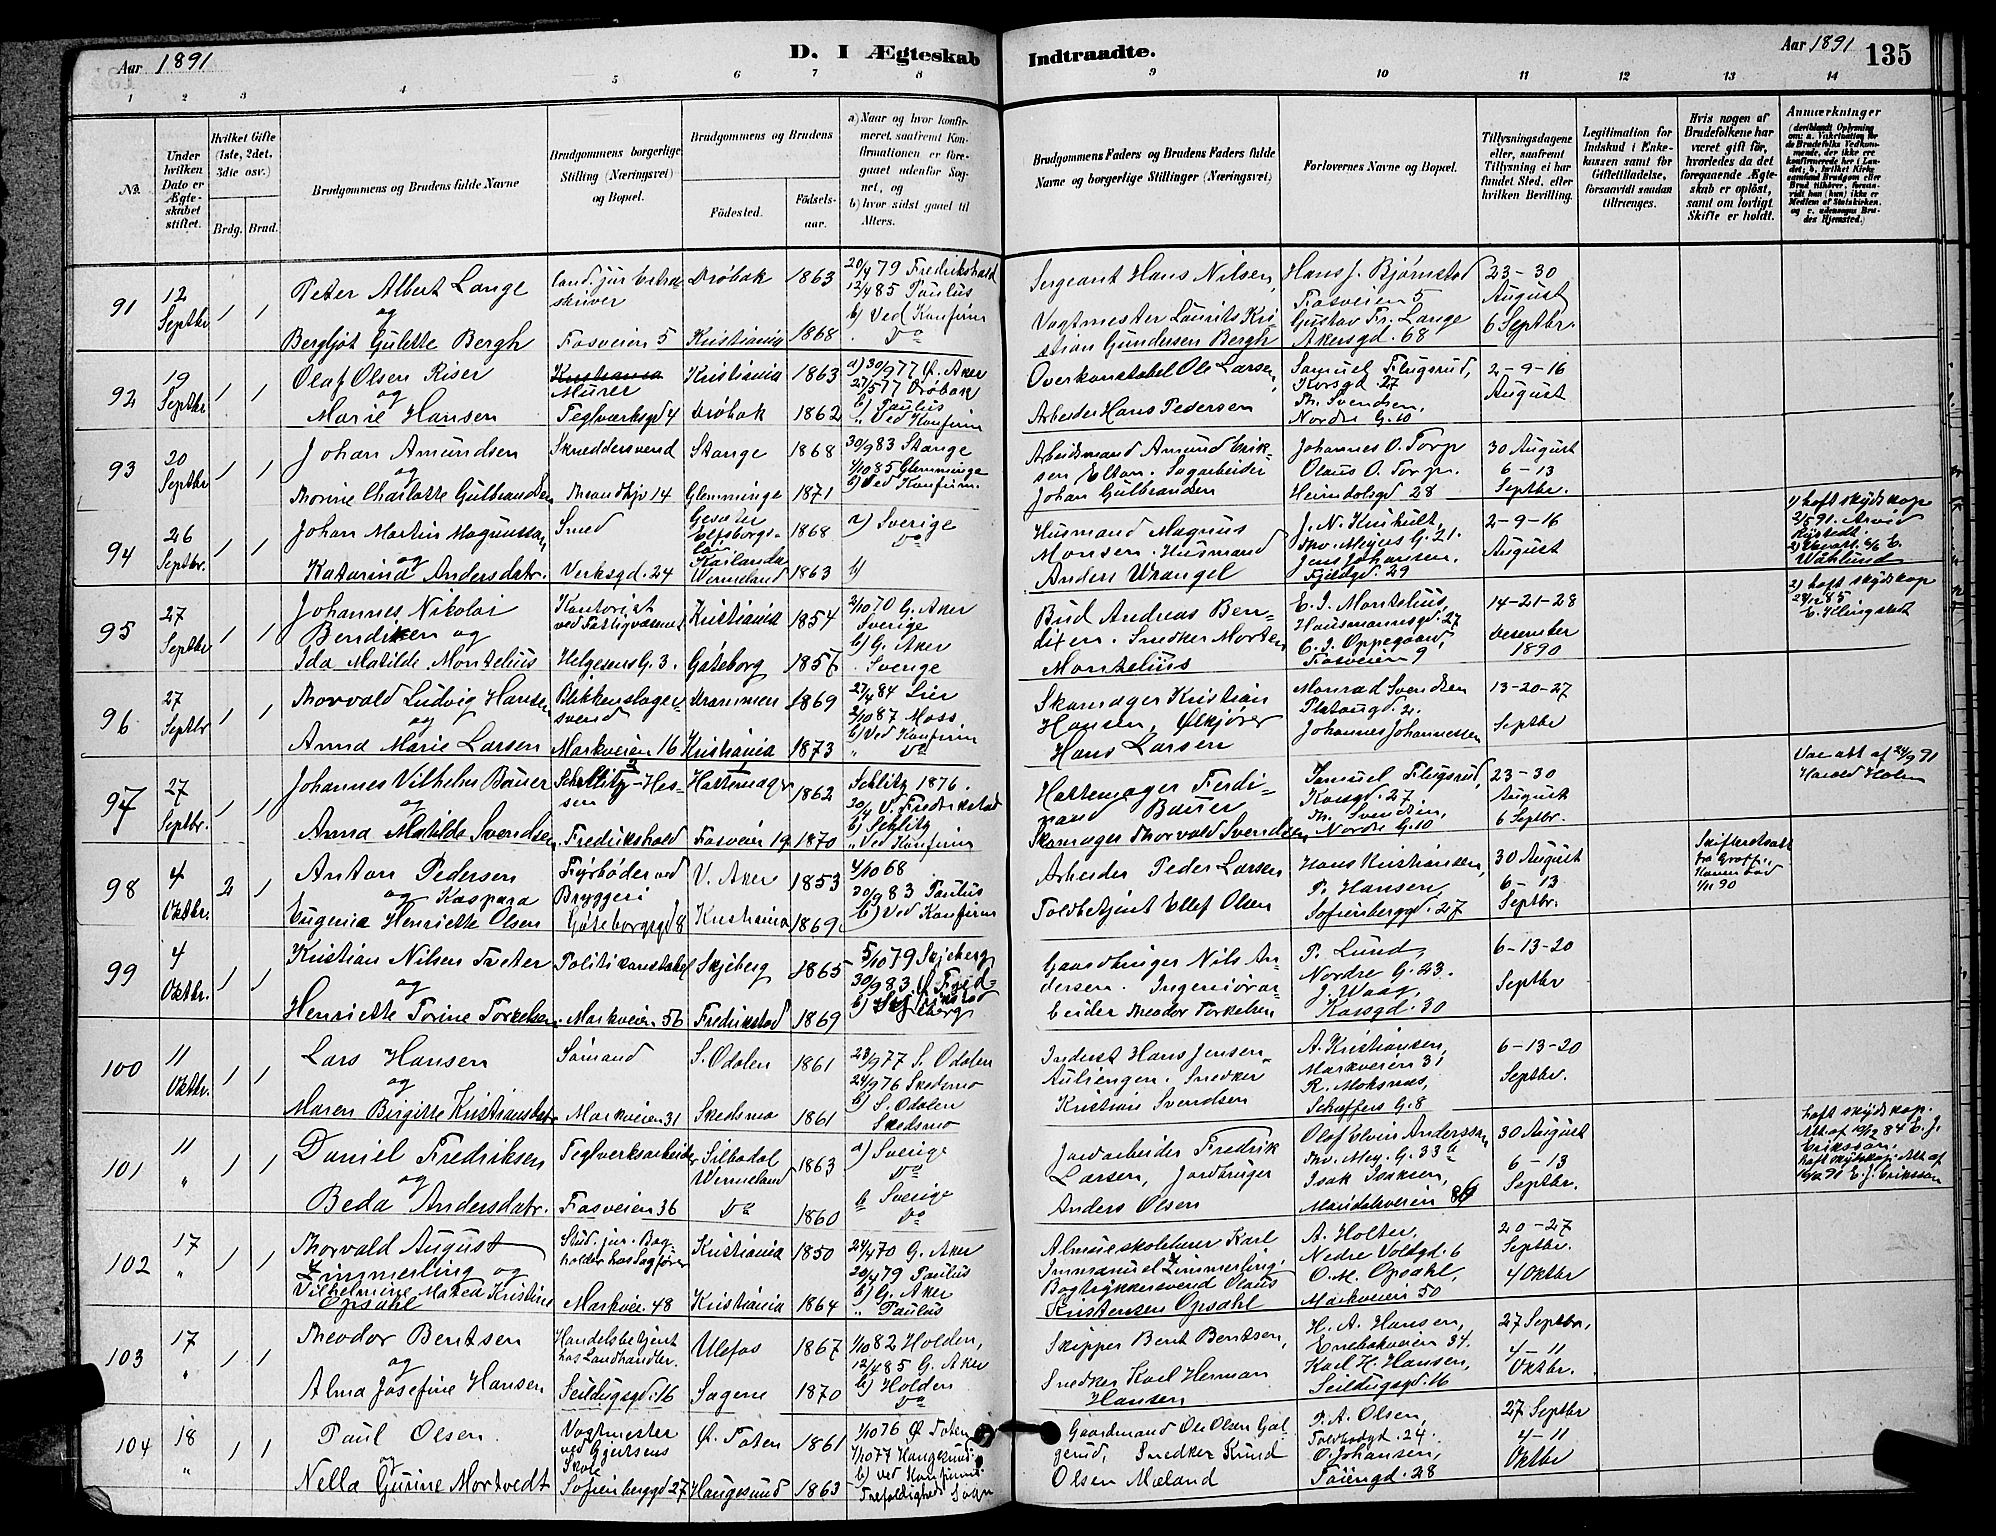 Aar 1891
D. I Ægteskab
Indtraadte.
Aar 1891
135
1 2 3 4 5 6 7 8
9 10 11 12 13 14
No.
Under hvilken Dato er Ægteskabet stiftet.
Hvilket Gifte (1ste, 2det, 3die osv.)
Brdg. Brud.
Brudgommens og Brudens fulde Navne
Brudgommens borgerlige Stilling (Næringsvei) og Bopæl.
Brudgommens og Brudens
Födested.
Födsels-aar.
a) Naar og hvor konfirmeret, saafremt Konfirmationen er foregaaet udenfor Sognet, og
b) hvor sidst gaaet til Alters.
Brudgommens Faders og Brudens Faders fulde Navne og borgerlige Stillinger (Næringsvei)
Forlovernes Navne og Bopæl.
Tillysningsdagene eller, saafremt Tillysning ei har fundet Sted, efter hvilken Bevilling.
Legitimation for Indskud i Enkekassen samt for Giftetilladelse, forsaavidt saadan tiltrænges.
Hvis nogen af Brudefolkene har været gift för, hvorledes da det foregaaende Ægteskab er oplöst, samt om lovligt Skifte er holdt.
Anmærkninger
91
12 Septbr
1 1
Peter Albert Lange
og
Bergljot Gulette Bergh
Fosveien 5
Drøbak 1863
Kristiania 1868
20/4 79 Fredrikshald
12/4 85 Paulus
b) Ved Konfirm
Do
Sergeant Hans Nilsen,
Vagtmester Laurits Kri-
stian Gundersen Bergh
Hans J. Bjørnstad
Fosveien 5
Gustav Fr. Lange
Akersgd. 68
23-30
August
6 Septbr.
92
19 Septbr
1 1
Olaf Olsen Riser
og
Marie Hansen
Murer
Teglverksgd 4
Kristiania 1863
Drøbak 1862
a) 30/9 77 Ø. Aker
27/5 77 Drøbak
b) Paulus
" Ved Konfirm
Overkonstabel Ole Larsen,
Arbeider Hans Pedersen
Samuel Flugsrud,
Korsgd. 27
Th. Svendsen,
Nordre G. 10
2-9-16
August
93
20 Septbr
1 1
Johan Amundsen
og
Thorine Charlotte Gulbrandsen
Skreddersvend
Stange 1868
Glemminge 1871
30/9 83 Stange
1/10 85 Glemminge
b) Ved Konfirm.
Arbeidsmand Amund Erik-
sen Elton. Sagarbeider
Johan Gulbrandsen
Johannes O. Torp
Olaus O. Torp.
Heimdalsgd 28
30 August
6-13
Septbr.
94
26 Septbr.
1 1
Johan Martin Magnusson
og
Katarina Andersdatr.
Smed
Verksgd. 24
Elfsborgs-
län 1868
Wermeland 1863
a) Sverige
Do
b)
Husmand Magnus
Monsen. Husmand
Anders Wrangel
Thv. Meyers G. 21.
Jens Johansen,
Fjeldgd. 29
2-9-16
August
95
27 Septbr
1 1
Johannes Nikolai
Bendixen og
Ida Matilde Montelius
Kontorist
ved Fattigvæsenet
Helgesens G. 3.
Kristiania 1854
Göteborg 1857
2/10 70 G. Aker
Sverige
b) G. Aker
Sverige
Bud Andreas Ben-
dixen. Snedker Morten
Montelius
E. J. Montelius
Hausmannsgd. 27
C. J. Oppegaard,
Fosveien 9
14-21-28
Desember
1890
96
27 Septbr
1 1
Thorvald Ludvig Hansen
og
Anna Marie Larsen
Blikkenslager-
svend
Markveien 16
Drammen 1869
Kristiania 1873
27/4 84 Lier
2/10 87 Moss
b) Ved Konfirm
" Do
Skomager Kristian
Hansen, Ølkjører
Hans Larsen
Monrad Svendsen
Platougd. 2.
Johannes Johannessen
13-20-27
Septbr
97
27 Septbr.
1 1
Johannes Vilhelm Bauer
og
Anna Matilde Svendsen
Schlitz-Hes-
sen
Fredrikshald
Hattemager
Fosveien 19
1862
1870
Schlitz 1876.
b) Schlitz
" Ved Konfirm
Hattemager Ferdi-
nand Bauer
Skomager Thorvald Svendsen
Samuel Flugsrud,
Korsgd. 27
Th. Svendsen,
Nordre G. 10
23-30
August
6 Septbr.
98
4 Oktbr.
2 1
Anton Pedersen
og Kaspara
Eugenia Henriette Olsen
Fyrbøder ved
Bryggeri
Göteborgsgd 8
V. Aker 1853
Kristiania 1869
4/10 68
30/9 83 Paulus
b) Ved Konfirm
Arbeider Peder Larsen
Toldbetjent Ellef Olsen
Hans Kristiansen,
P. Hansen,
Sofienberggd. 27
30 August
6-13
Septbr.
99
4 Oktbr.
1 1
Kristian Nilsen Tveter
og
Henriette Torine Torkelsen
Politikonstabel
Markveien 56
Skjeberg 1865
Fredrikstad 1869
5/10 79 Skjeberg
Gaardbruger Nils An-
dersen. Ingeniørar-
beider Theodor Torkelsen
P. Lund,
Nordre G. 23.
J. Waag,
Korsgd. 30
6-13-20
Septbr
100
11 Oktbr.
1 1
Lars Hansen
og
Maren Birgitte Kristiansdatr
Sömand
Markveien 31
S. Odalen 1861
Skedsmo 1861
23/9 77 S. Odalen
24/9 76 Skedsmo
b) S. Odalen
Skedsmo
Inderst Hans Jensen
Auliengen. Snedker
Kristian Svendsen
A. Kristiansen,
Markveien 31
R. Moksnæs,
Schæffers G. 8
6-13-20
Septbr.
101
11 "
1 1
Daniel Fredriksen
og
Beda Andersdatr.
Teglverksarbeider
Fosveien 36
Silbodal
Wermeland 1863
Do 1860
a) Sverige
Do
b Sverige
Do
Jordarbeider Fredrik
Larsen, Jordbruger
Anders Olsen
Olof Elvin Anderssen
Thv. Mey. G. 33 b
Isak Isaksen,
Maridalsveien
30 August
6-13
Septbr.
102
17 "
1 1
Thorvald August
Zimmerling og
Vilhelmine Matea Kristine
Opsahl
Stud. jur. Bog-
holder hos Sagfører
Markvei. 48
Kristiania 1850
Kristiania 1864
24/4 70 G. Aker
20/4 79 Paulus
b) G. Aker
" Paulus
Almueskolelærer Karl
Immanuel Zimmerling.
Bogtrykkersvend Olaus
Kristensen Opsahl
A. Holter,
Nedre Voldgd. 6
O. M. Opsahl,
Markveien 50
20-27
Septbr.
4 Oktbr
103
17 "
1 1
Theodor Bentsen
og
Alma Josefine Hansen
Handelsbetjent
hos Landhandler.
Seildugsgd. 16
Ulefos 1867
Sagene 1870
1/10 82 Holden,
12/4 85 G. Aker
b) Holden
Do
Skipper Bent Bentsen,
Snedker Karl Herman
Hansen
H. A. Hansen,
Enebakveien 34.
Karl H. Hansen,
Seildugsgd. 16
27 Septbr,
4-11
Oktbr.
104
18 "
1 1
Paul Olsen
og
Nella Gurine Mortvedt
Vagtmester
ved Gjertsens
Skole
Sofienberggd 27
Ø. Toten 1861
Haugesund 1863
1/10 76 Ø. Toten
1/10 77 Haugesund
b) Ved Konfirm.
Trefoldigheds Sogn
Gaardmand Ole Olsen Gal-
gerud, Snedker Knud
Olsen Mæland
P. A. Olsen,
Toldbodgd. 24.
O. Johansen,
Töiengd. 28
27 Septbr
4-11
Oktbr